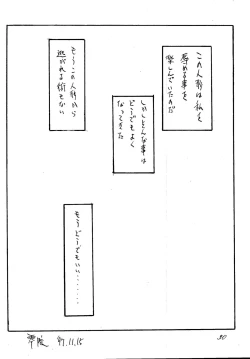 この人形は私を
辱める事を
楽しんでいたのだ
しかしそんな事は
どうでもよく
なってきた
もうこの人形から
逃がれる術もない
もうどうでもいい・・・・・・・
97.11.15
30